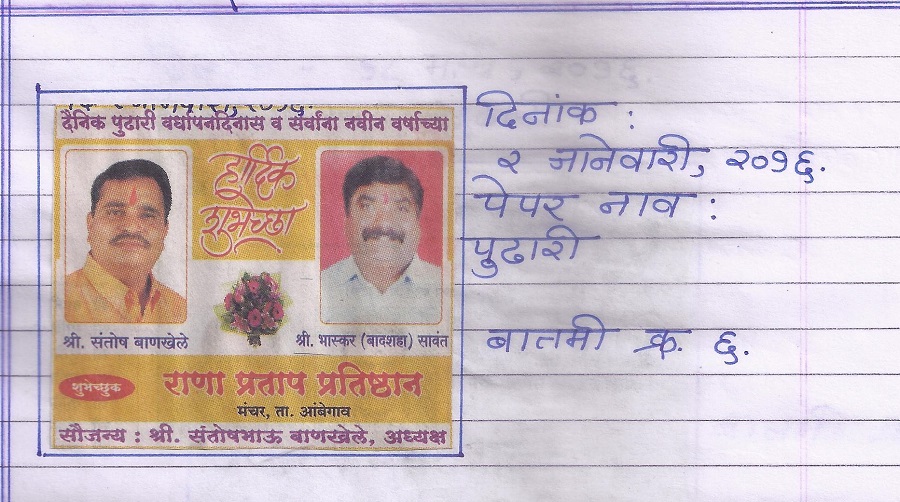 दैनिक पुढारी वर्धापनदिनास व सर्वांना नवीन वर्षाच्या
हार्दिक
शुभेच्छा
श्री. संतोष बाणखेले
श्री. भास्कर (बादशहा) सावंत
शुभेच्छुक
राणा प्रताप प्रतिष्ठान
मंचर, ता. आंबेगाव
सौजन्य : श्री. संतोषभाऊ बाणखेले, अध्यक्ष
दिनांक :
२ जानेवारी, २०१६.
पेपर नाव :
पुढारी
बातमी क्र. ६.